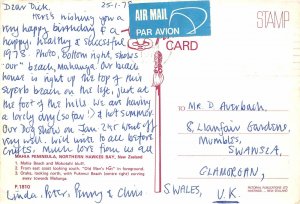 Dear Dick, 25-1-78
Here's wishing you a
very happy birthday & a
happy, healthy & successful
1978. Photo, bottom right, shows
"our" beach, Mahanga. Our beach
house is right up the top of this
superb beach on the left, just at
the foot of the hill. We are having
a lovely dry (so far!) & hot summer.
Our Dog Show on Jan 2nd went off
very well. Will write to all before
Crufts. Much love from us all
MAHIA PENINSULA, NORTHERN HAWKES BAY, New Zealand
1. Mahia Beach and Mokotahi bluff.
2. From east coast looking south, "Old Man's Hat" in foreground.
3. Oraka, looking north, with
P.1810
Linda, Peter, Penny & Chris
AIR MAIL
PAR AVION
STAMP
CARD
TO
MR D Averbach,
8, Llanfair Gardens,
Mumbles,
SWANSEA,
GLAMORGAN,
S WALES, U.K.
NEW ZEALAND